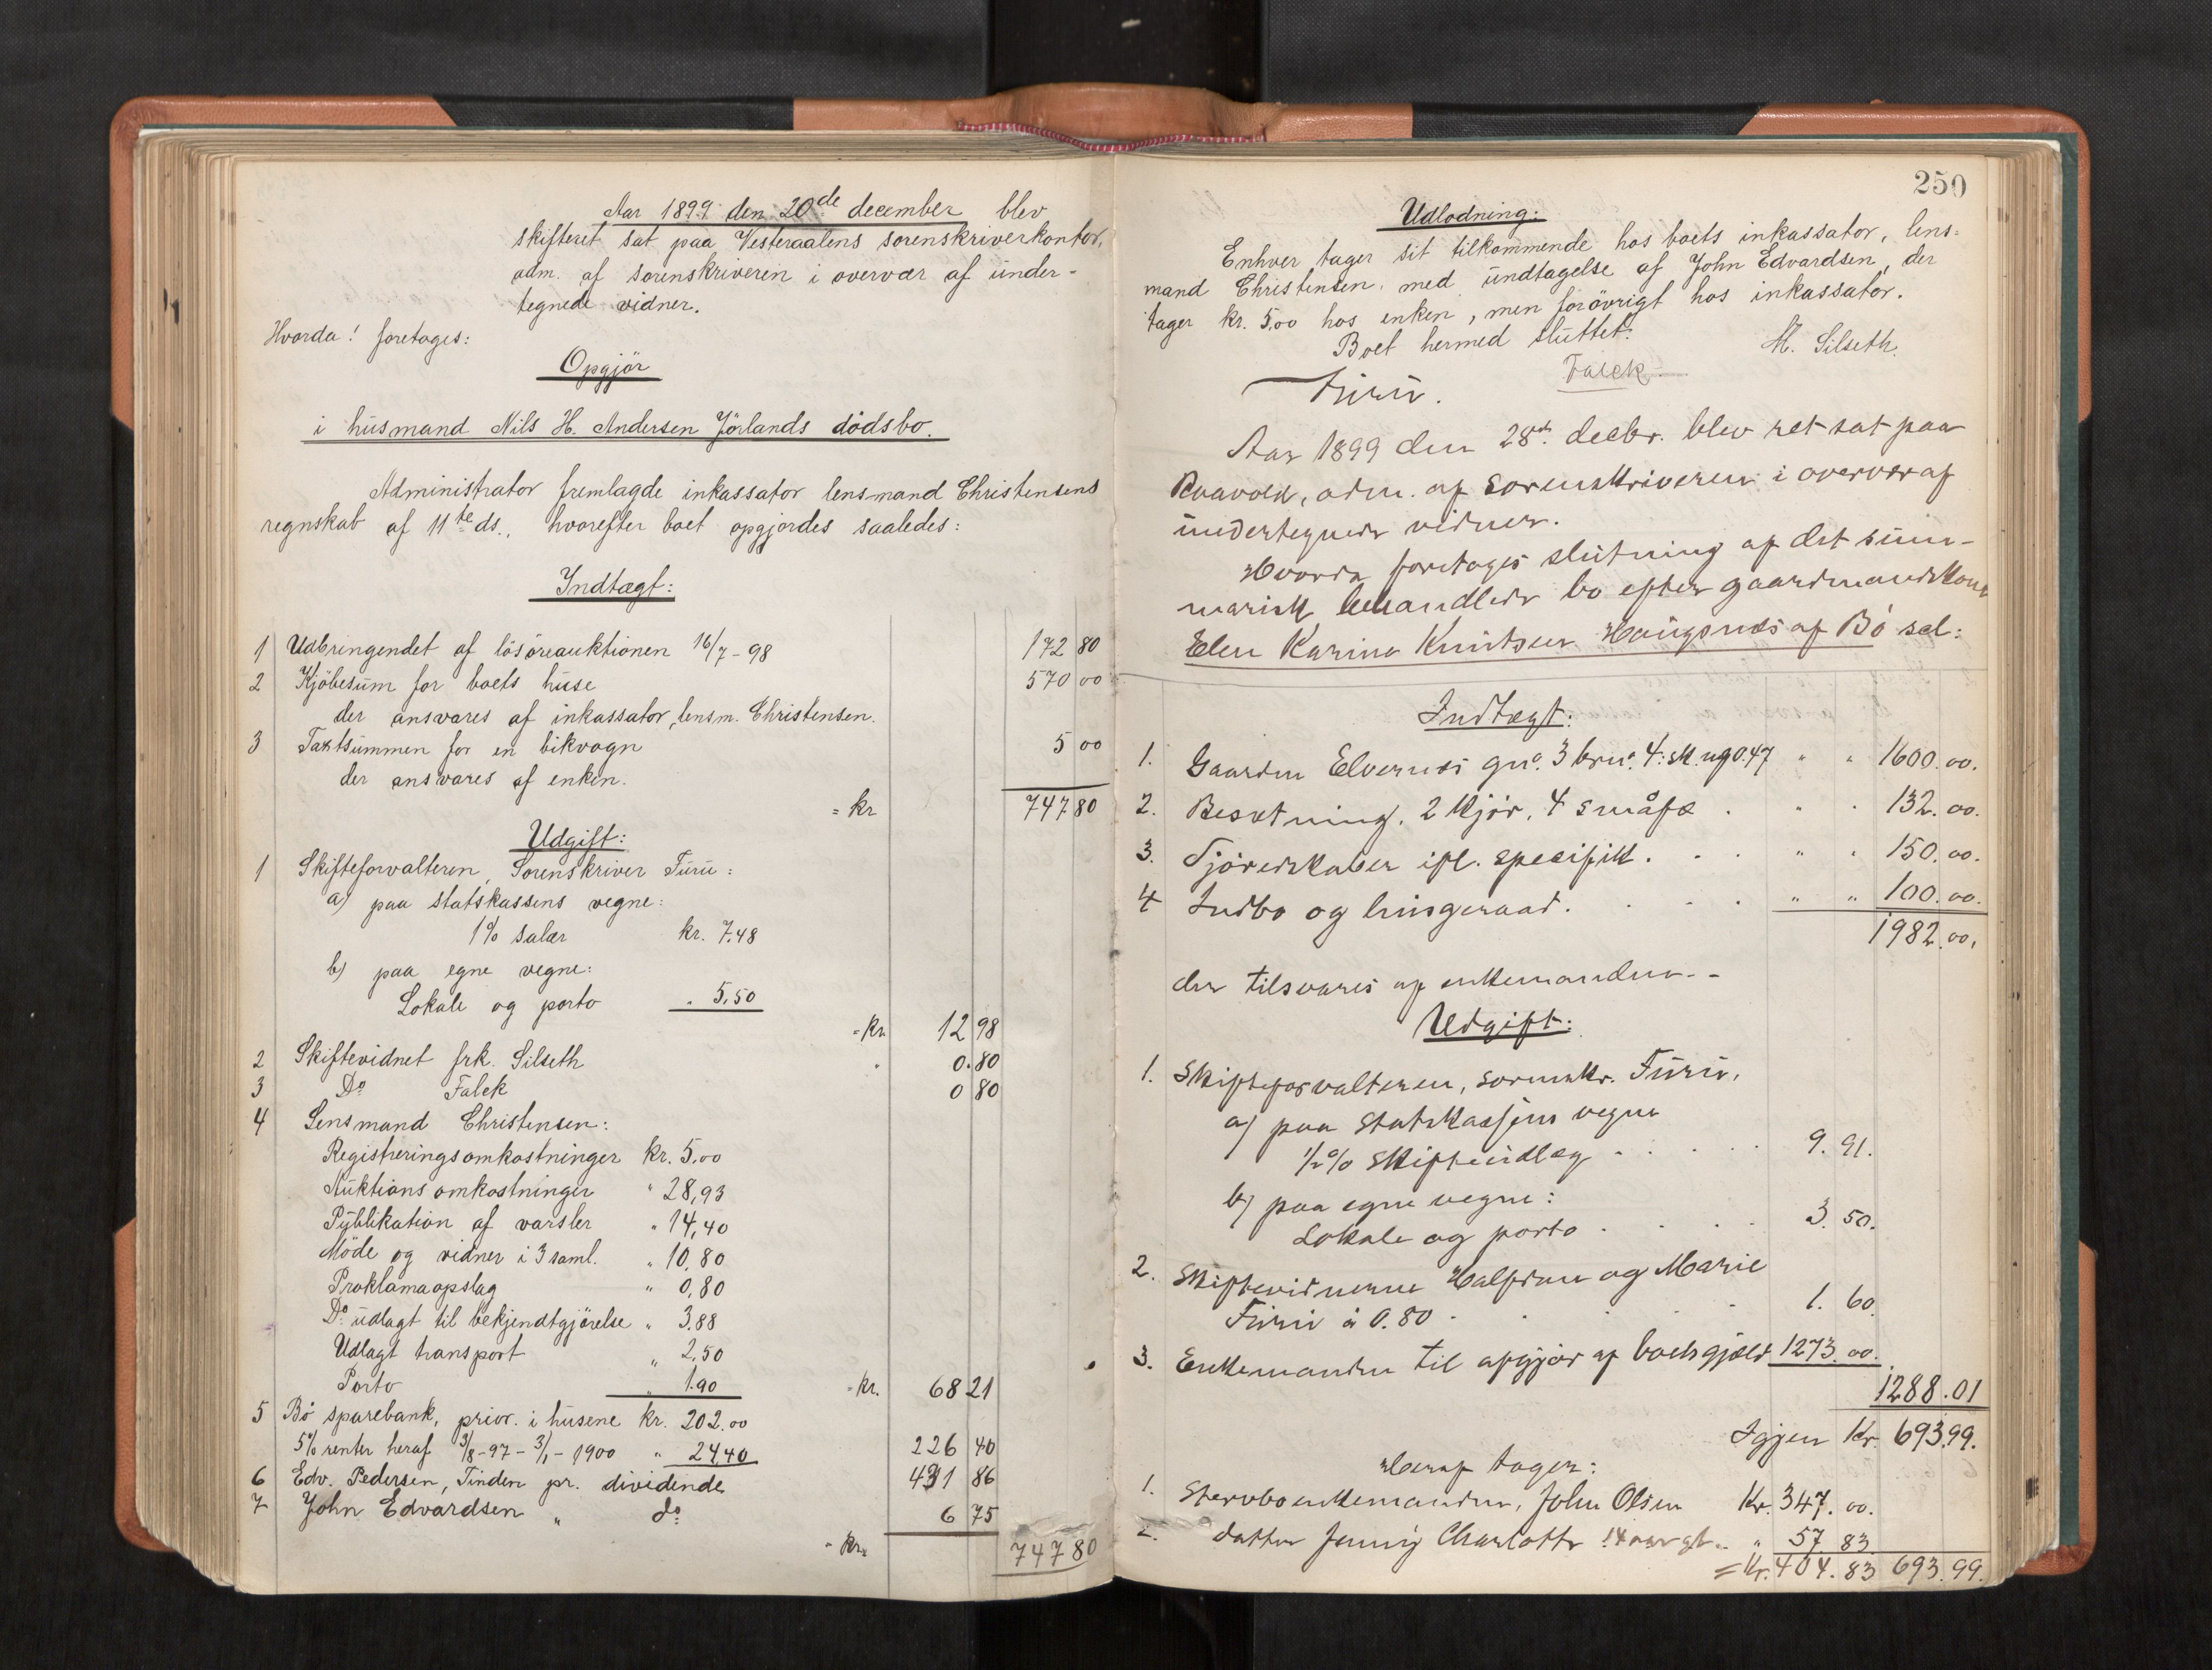 Aar 1899 den 20de december blev
skifteret sat paa Vesteraalens sorenskriverkontor,
adm. af sorenskriveren i overvær af under-
tegnede vidner.
Hvorda! foretoges:
Opgjör
i husmand Nils H. Andersen Jörlands dödsbo.
Administrator fremlagde inkassator lensmand Christensens
regnskab af 11te ds., hvorefter boet opgjordes saaledes:
Indtægt:
1 Udbringendet af lösöreauktionen 16/7 - 98 172 80
2 Kjöbesum for boets huse 570 00
der ansvares af inkassator, lensm. Christensen.
3 Taxtsummen for en bikvogn 5 00
der ansvares af enken.
= kr 747 80
Udgift:
1 Skifteforvalteren, Sorenskriver Furu:
a) paa statskassens vegne:
1% salær kr. 7.48
b) paa egne vegne:
Lokale og porto " 5,50
= kr. 12 98
2 Skiftevidnet frk. Silseth " 0.80
3 Do Falck 0 80
4 Lensmand Christensen:
Registreringsomkostninger kr. 5,00
Auktionsomkostninger " 28,93
Publikation af varsler " 14,40
Möde og vidner i 3 saml. " 10,80
Proklamaopslag " 0,80
Do udlagt til bekjendtgjörelse " 3.88
Udlagt transport " 2,50
Porto " 1.90 = kr. 68 21
5 Bö sparebank, prior. i husene kr. 202.00
5% renter heraf 3/8 - 97 - 3/1 - 1900 " 24.40 226 40
6 Edv. Pedersen, Tinden pr. dividende 431 86
7 John Edvardsen " do 6 75
= kr. 747 80
250
Udlodning:
Enhver tager sit tilkommende hos boets inkassator, lens=
mand Christensen, med undtagelse af John Edvardsen, der
tager kr. 5,00 hos enken, men forövrigt hos inkassator.
Boet hermed sluttet.
M. Silseth.
Falck
Furu.
Aar 1899 den 28de decbr. blev ret sat paa
adm. af sorenskriveren i overvær af
undertegnede vidner.
Hvorda foretoges slutning af det sum-
marisk behandlede bo efter gaardmandskone
Elen Karine Knutsen Haugsnes af Bö sel:
Indtægt:
1. Gaarden Elvenæs gno. 3 bno. 4: sk. mg 0.47 " " 1600.00.
2. Besætning. 2 kjör, 4 småfæ . " . 132.00.
3. Fjöredskaber ifl. specifik. . . . " . 150.00.
4 Indbo og husgeraad. . . . " " 100.00.
1982.00.
der tilsvares af enkemanden--
Udgift:
1. Skifteforvalteren, sorenskr. Furu,
a) paa Statskassens vegne
1/2% Skifteudlæg . . . . . 9.91.
b) paa egne vegne:
Lokale og porto . . . . 3.50.
2. Skiftevidnerne Halfdan og Marie
Furu à 0.80 . . . . 1.60.
3. Enkemanden til opgjör af boets gjæld 1273.00.
1288.01
Igjen Kr. 693.99.
Heraf tager:
1. Stervboenkemanden, John Olsen Kr. 347.00.
2. datter Jenny Charlotte 14 aar gl. " 57 83
= Kr. 404.83 693.99.